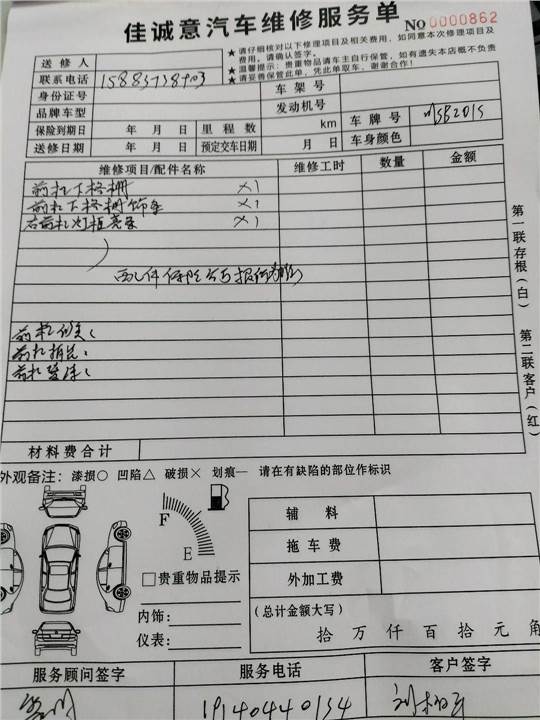 佳诚意汽车维修服务单
NO 0000862
★请仔细核对以下修理项目及相关费用，如同意本次修理项目及
费用，请确认签字。
★温馨提示：贵重物品请车主自行保管，如有遗失本店概不负责
★请妥善保管此单，凭此单取车，谢谢合作！
送修人
联系电话 车架号
身份证号 发动机号
品牌车型 km 车牌号
保险到期日 年 月 日 里程数 车身颜色
送修日期 年 月 日 预定交车日期 月 日
维修项目/配件名称 维修工时 数量 金额
前杠下格栅 X1
前杠下格栅饰条 X1
右前杠灯框亮条 X1
第一联存根（白）
第二联客户（红）
材料费合计
外观备注：漆损○ 凹陷△ 破损× 划痕— 请在有缺陷的部位作标识
F
E
□贵重物品提示
内饰：
仪表：
辅料
拖车费
外加工费
（总计金额大写）
拾 万 仟 百 拾 元 角
服务顾问签字 服务电话 客户签字
19140440134